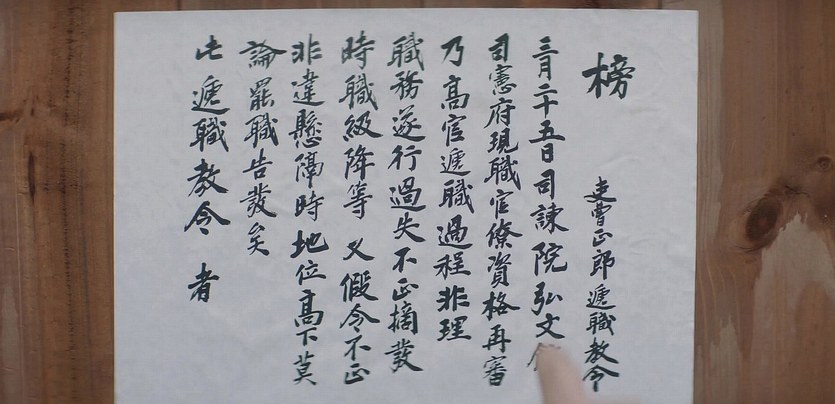 榜
吏曹正郎遞職教令
三月二十五日司諫院弘文
司憲府現職官僚資格再審
乃高官遞職過程非理
職務遂行過失不正摘發
時職級降等 又假令不正
非違懸隔時 地位高下莫
論罷職告發矣
此遞職教令 者